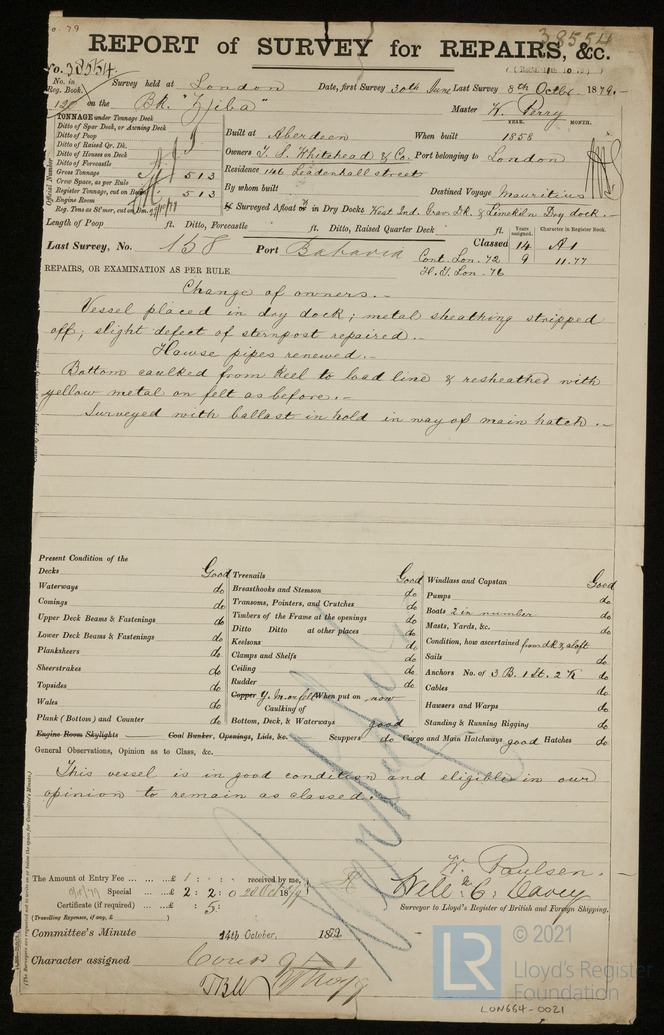 38554
REPORT of SURVEY for REPAIRS, &c.
No. 38554.
No. in Reg. Book. Survey held at London Date, first Survey 30th June Last Survey 8th Octbr 1879.
on the Bk. "Ziba" Master W. Perry
TONNAGE under Tonnage Deck
Ditto of Spar Deck, or Awning Deck
Ditto of Poop
Ditto of Raised Qr. Dk.
Ditto of Houses on Deck
Ditto of Forecastle
Gross Tonnage 513
Crew Space, as per Rule
Register Tonnage, cut on Beam 513
Engine Room
Reg. Tons as St'mer, cut on Bm.
Official Number
YEAR. MONTH.
Built at Aberdeen When built 1858
Owners T. S. Whitehead & Co. Port belonging to London
Residence 146 Leadenhall street
By whom built Destined Voyage Mauritius
If Surveyed Afloat or in Dry Dock West Ind. Grav. Dk. & Limekiln Dry dock.
Length of Poop ft. Ditto, Forecastle ft. Ditto, Raised Quarter Deck ft.
Last Survey, No. 158 Port Batavia Classed 14 A1
Years assigned. Character in Register Book.
Cont. Lon. 72 9 11.77
H. T. Lon. 76
REPAIRS, OR EXAMINATION AS PER RULE
Change of owners.-
Vessel placed in dry dock; metal sheathing stripped
off; slight defect of sternpost repaired.-
Hawse pipes renewed.-
Bottom caulked from keel to load line & resheathed with
yellow metal on felt as before.-
Surveyed with ballast in hold in way of main hatch.-
Present Condition of the
Decks Good
Waterways do
Comings do
Upper Deck Beams & Fastenings do
Lower Deck Beams & Fastenings do
Planksheers do
Sheerstrakes do
Topsides do
Wales do
Plank (Bottom) and Counter do
Treenails Good
Breasthooks and Stemson do
Transoms, Pointers, and Crutches do
Timbers of the Frame at the openings do
Ditto Ditto at other places do
Keelsons do
Clamps and Shelfs do
Ceiling do
Rudder do
Copper Y. M. on felt When put on now
Caulking of
Bottom, Deck, & Waterways good
Windlass and Capstan Good
Pumps do
Boats 2 in number do
Masts, Yards, &c. do
Condition, how ascertained from dk & aloft
Sails do
Anchors No. of 3 B. 1 St. 2 K do
Cables do
Hawsers and Warps do
Standing & Running Rigging do
Engine Room Skylights Coal Bunker, Openings, Lids, &c. Scuppers do Cargo and Main Hatchways good Hatches do
General Observations, Opinion as to Class, &c.
This vessel is in good condition and eligible in our
opinion to remain as classed.-
The Amount of Entry Fee £ 1 : : received by me,
Special £ 2 : 2 : 0
Certificate (if required) : 5 :
(Travelling Expenses, if any, £ )
W. Paulsen.-
Willm. C. Davey
Surveyor to Lloyd's Register of British and Foreign Shipping.
Committee's Minute 14th October, 1879
Character assigned
© 2021
LR
Lloyd's Register
Foundation
LON654-0021